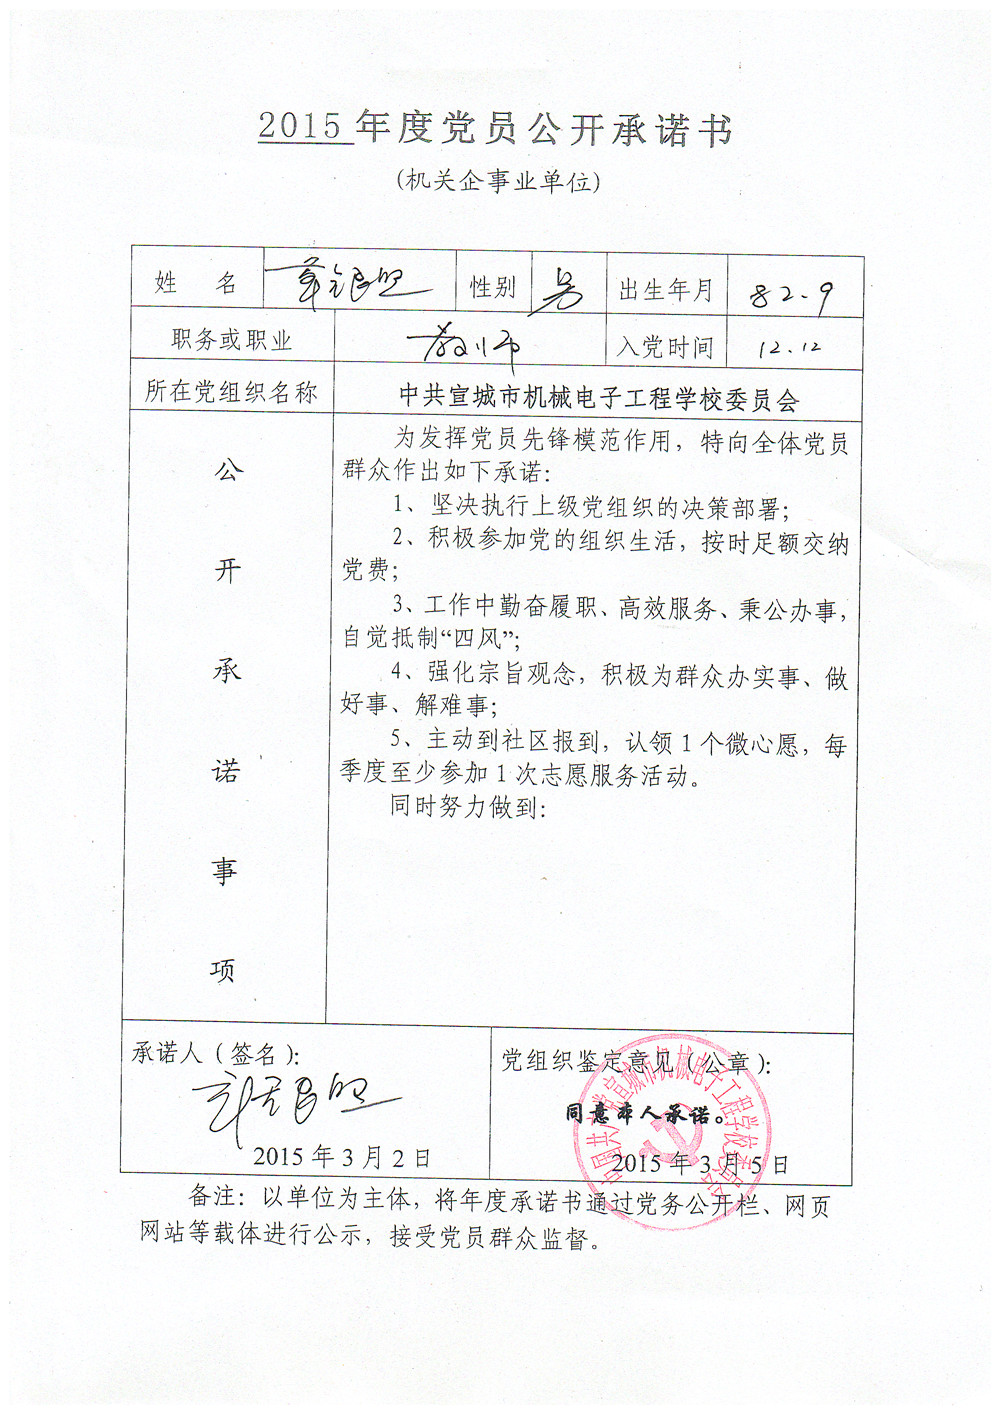 2015 年度党员公开承诺书
(机关企事业单位)
姓 名 章银照 性别 男 出生年月 82.9
职务或职业 教师 入党时间 12.12
所在党组织名称 中共宣城市机械电子工程学校委员会
公开承诺事项
为发挥党员先锋模范作用，特向全体党员
群众作出如下承诺：
1、坚决执行上级党组织的决策部署；
2、积极参加党的组织生活，按时足额交纳
党费；
3、工作中勤奋履职、高效服务、秉公办事，
自觉抵制“四风”；
4、强化宗旨观念，积极为群众办实事、做
好事、解难事；
5、主动到社区报到，认领 1 个微心愿，每
季度至少参加 1 次志愿服务活动。
同时努力做到：
承诺人（签名）：
2015 年 3 月 2 日
党组织鉴定意见（公章）：
同意本人承诺。
2015 年 3 月 5 日
中国共产党宣城市机械电子工程学校委员会
备注：以单位为主体，将年度承诺书通过党务公开栏、网页
网站等载体进行公示，接受党员群众监督。